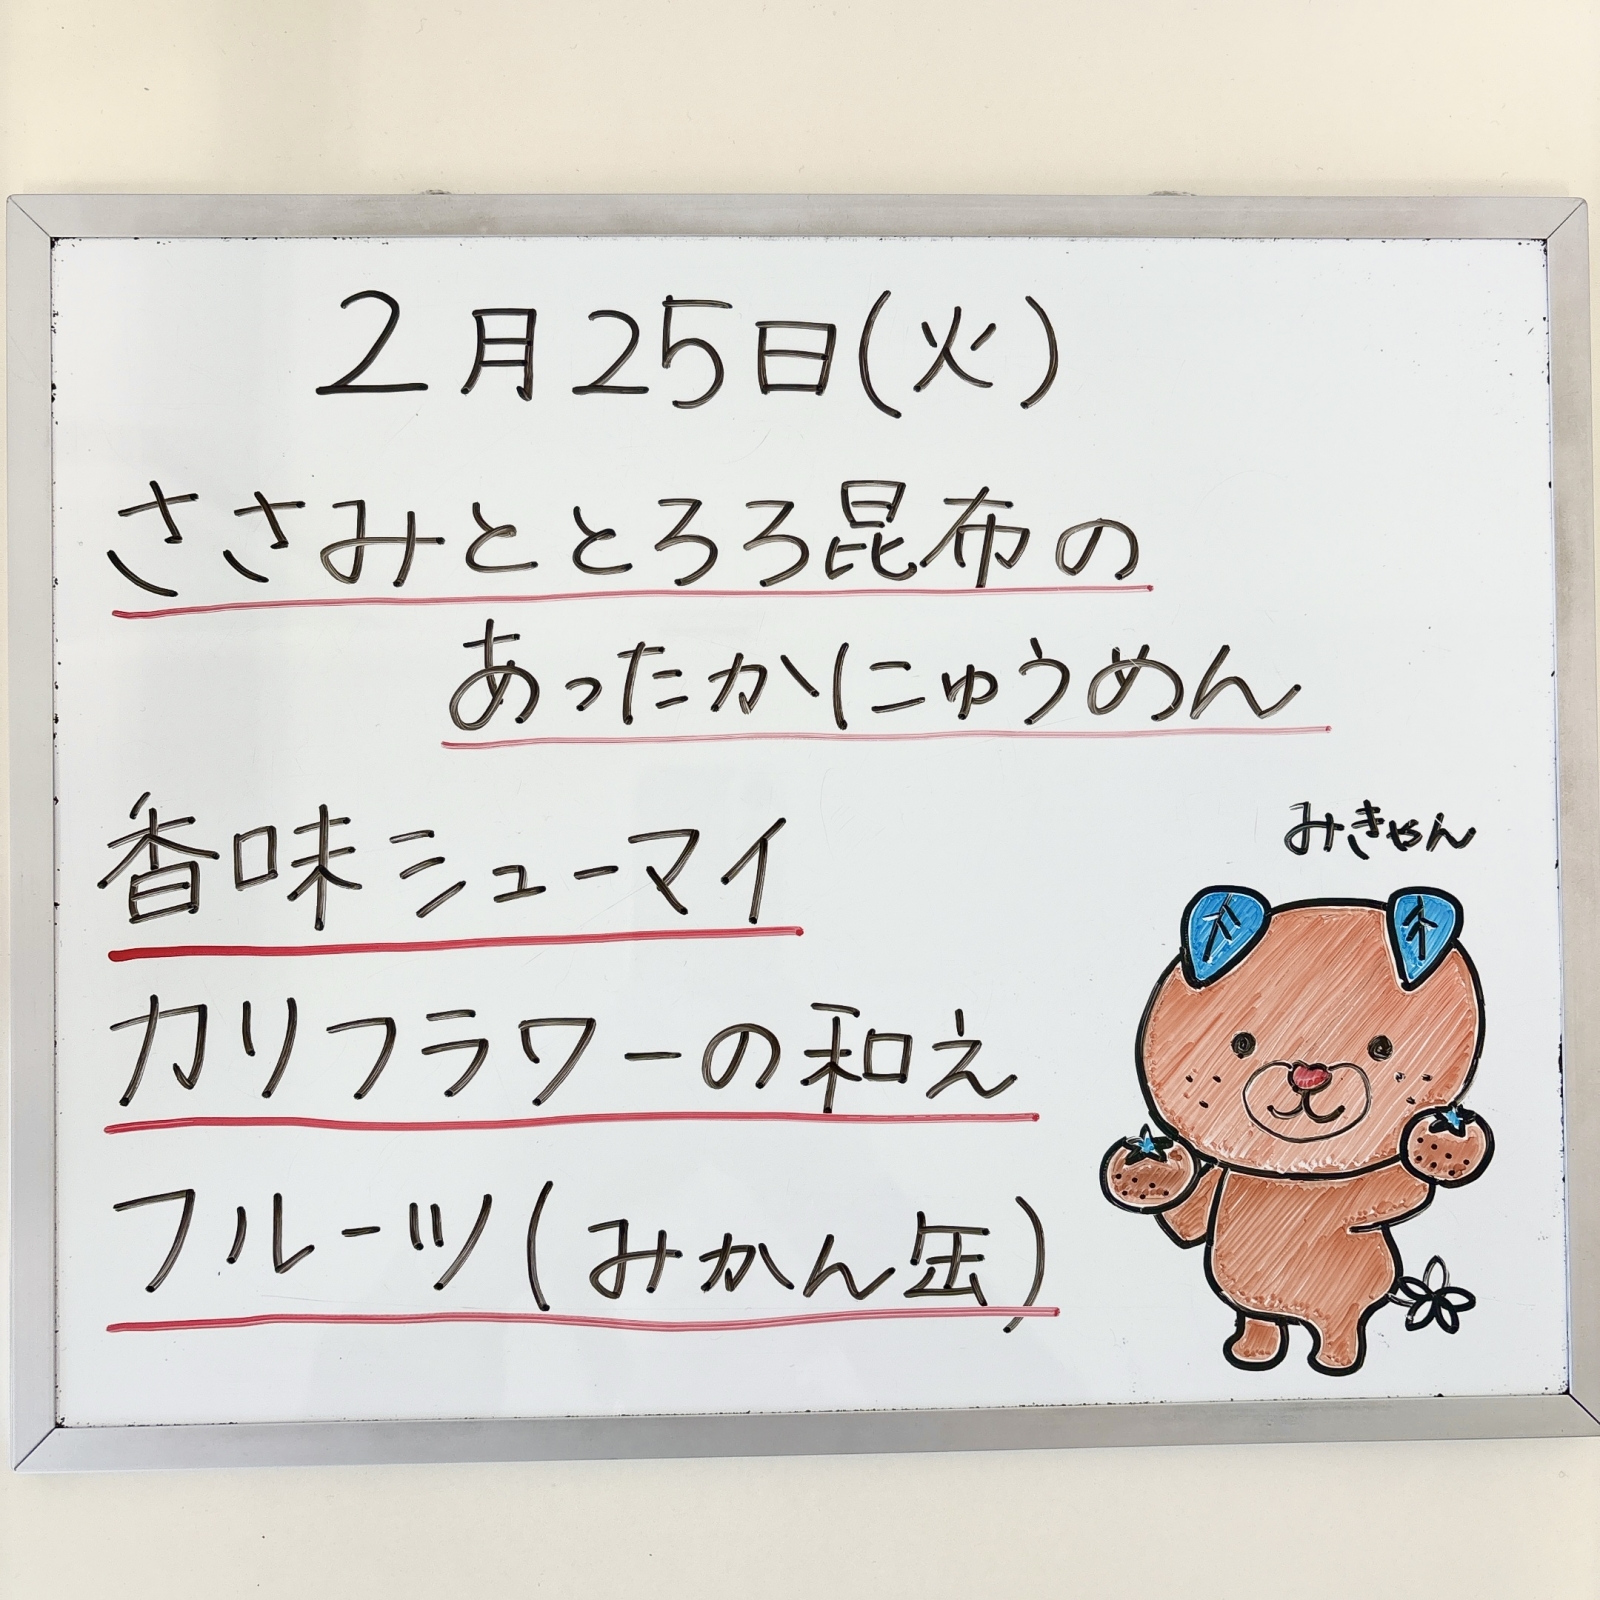 2月25日(火)
ささみととろろ昆布の
あったかにゅうめん
香味シューマイ
カリフラワーの和え
フルーツ(みかん缶)
みきゃん